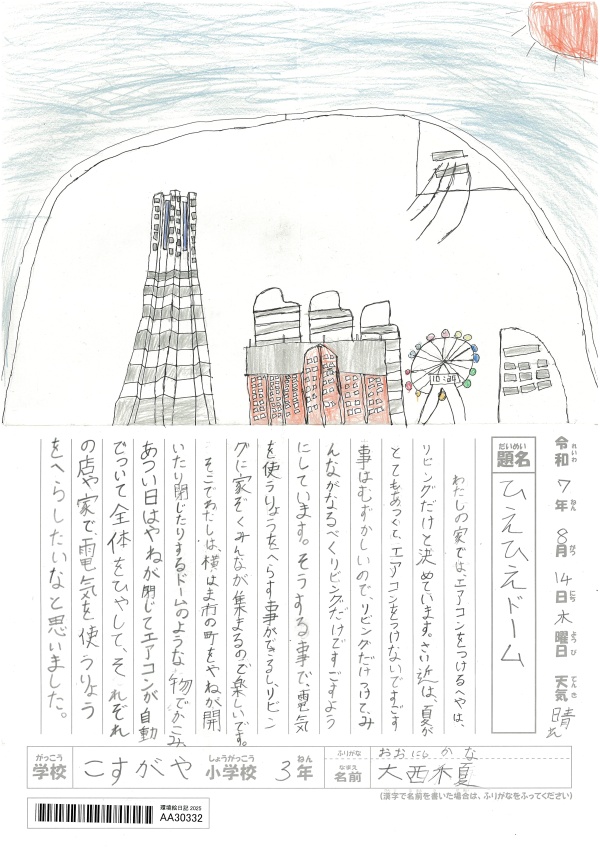 10:24
令和7年8月14日木曜日 天気 晴れ
れいわ ねん がつ にち ようび てんき
だいめい
題名 ひえひえドーム
わたしの家では、エアコンをつけるへやは、
リビングだけと決めています。さい近は、夏が
とてもあつくて、エアコンをつけないですごす
事はむずかしいので、リビングだけつけて、み
んながなるべくリビングだけですごすよう
にしています。そうする事で、電気
を使うりょうをへらす事ができるし、リビン
グに家ぞくみんなが集まるので楽しいです。
そこでわたしは、横はま市の町をやねが開
いたり閉じたりするドームのような物でかこみ、
あつい日はやねが閉じてエアコンが自動
でついて全体をひやして、それぞれ
の店や家で電気を使うりょう
をへらしたいなと思いました。
がっこう しょうがっこう ねん ふりがな おおにし かな
学校 こすがや 小学校 3年 なまえ 名前 大西禾夏
(漢字で名前を書いた場合は、ふりがなをふってください)
環境絵日記 2025
AA30332